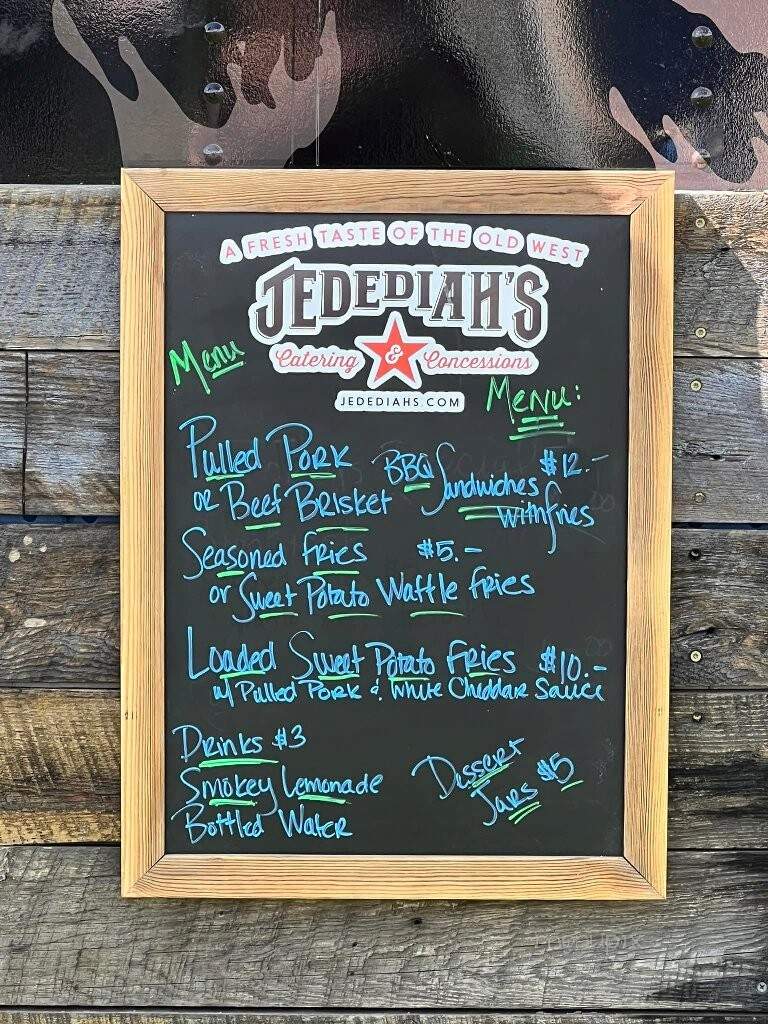 A FRESH TASTE OF THE OLD WEST
JEDEDIAH'S
Catering & Concessions
JEDEDIAHS.COM
Menu
MENU:
Pulled Pork
or Beef Brisket
BBQ Sandwiches $12.-
with fries
Seasoned Fries $5.-
or Sweet Potato Waffle fries
Loaded Sweet Potato Fries $10.-
w/ Pulled Pork & White Cheddar Sauce
Drinks $3
Smokey Lemonade
Bottled Water
Dessert
Jars $5